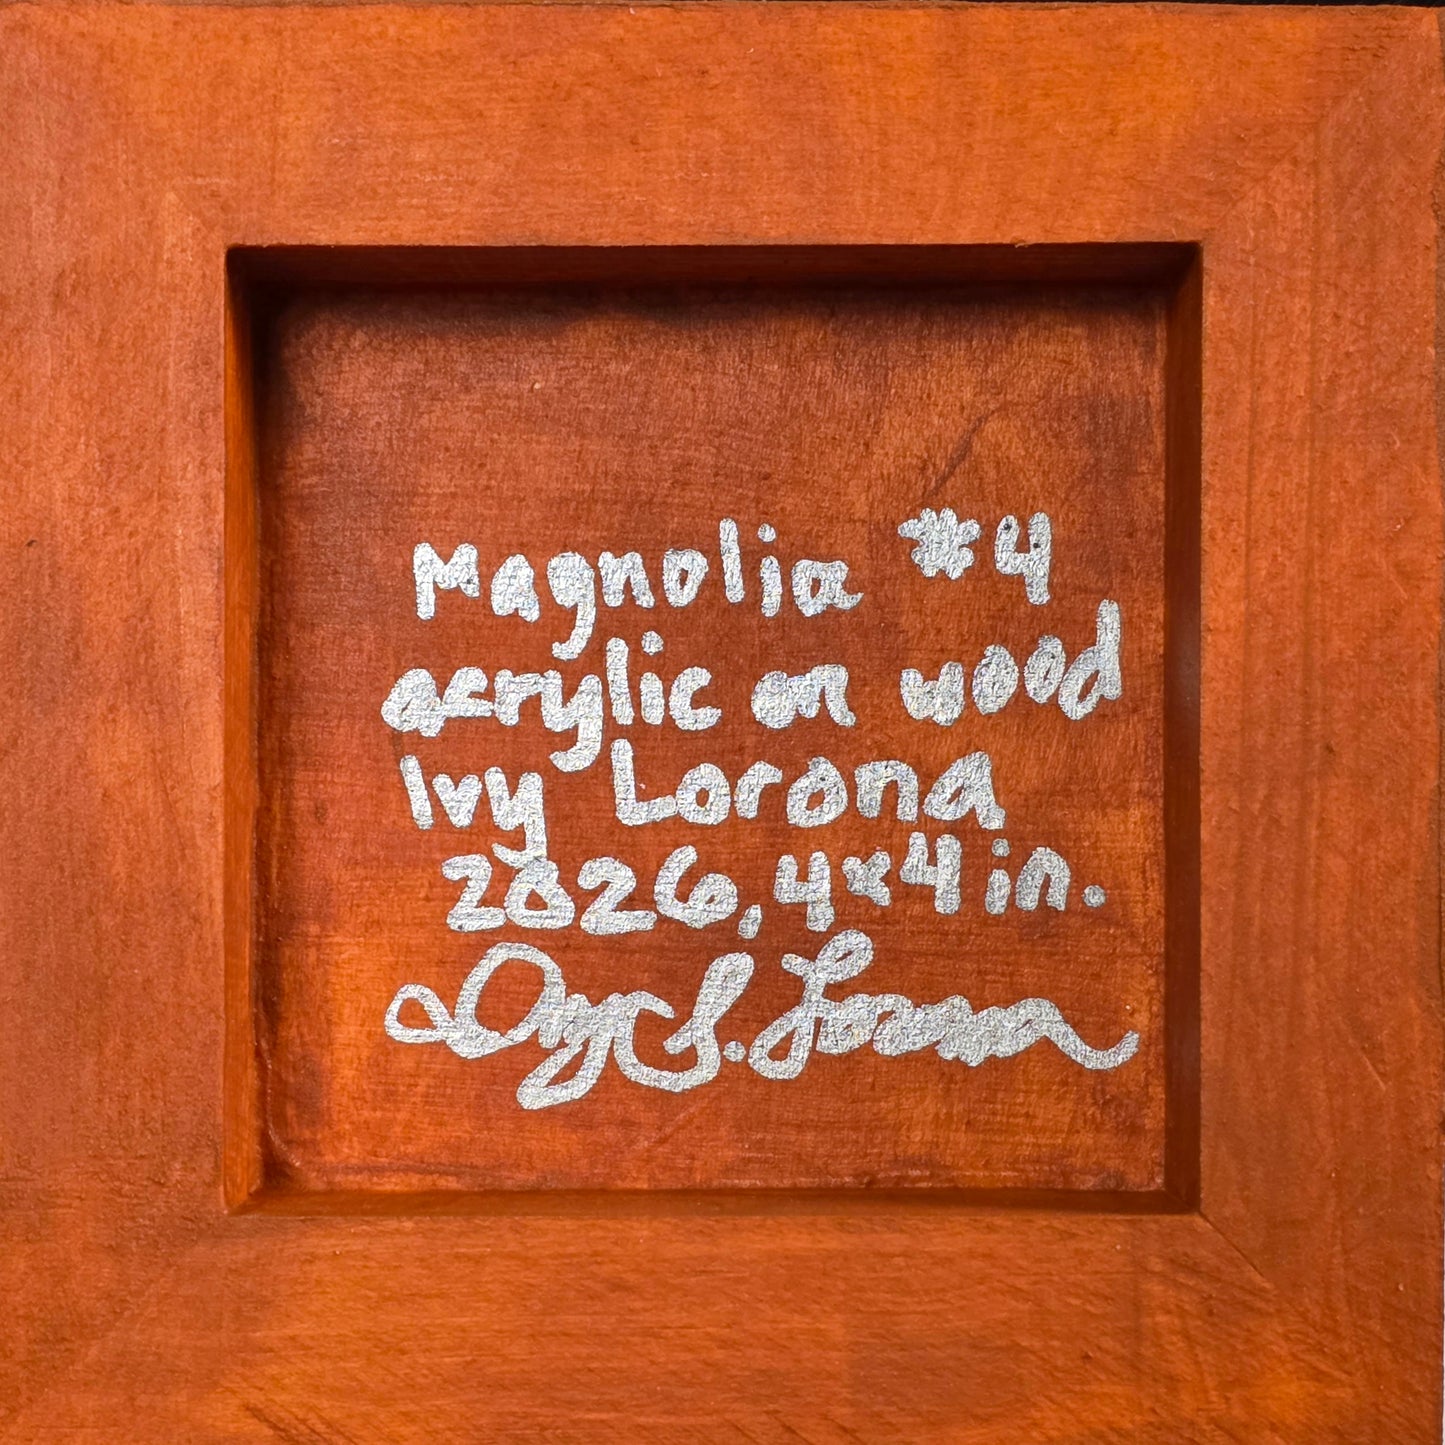 Magnolia #4
acrylic on wood
Ivy Lorona
2026, 4x4 in.